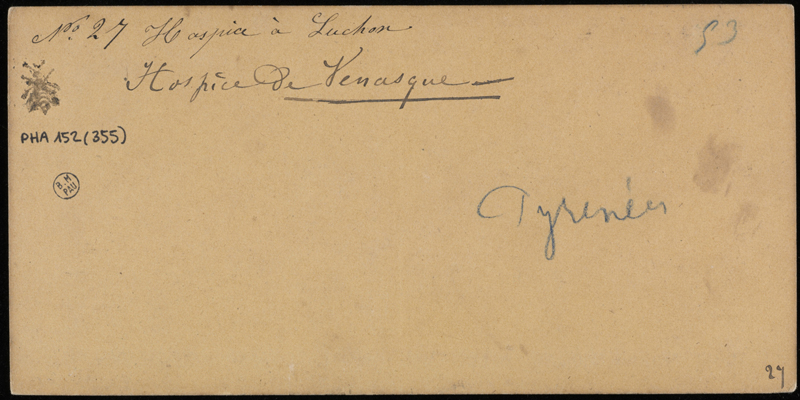 No. 27 Hospice à Luchon
53
Hospice De Venasque
PHA 152 (355)
B. M.
PAU
Pyrénées
27